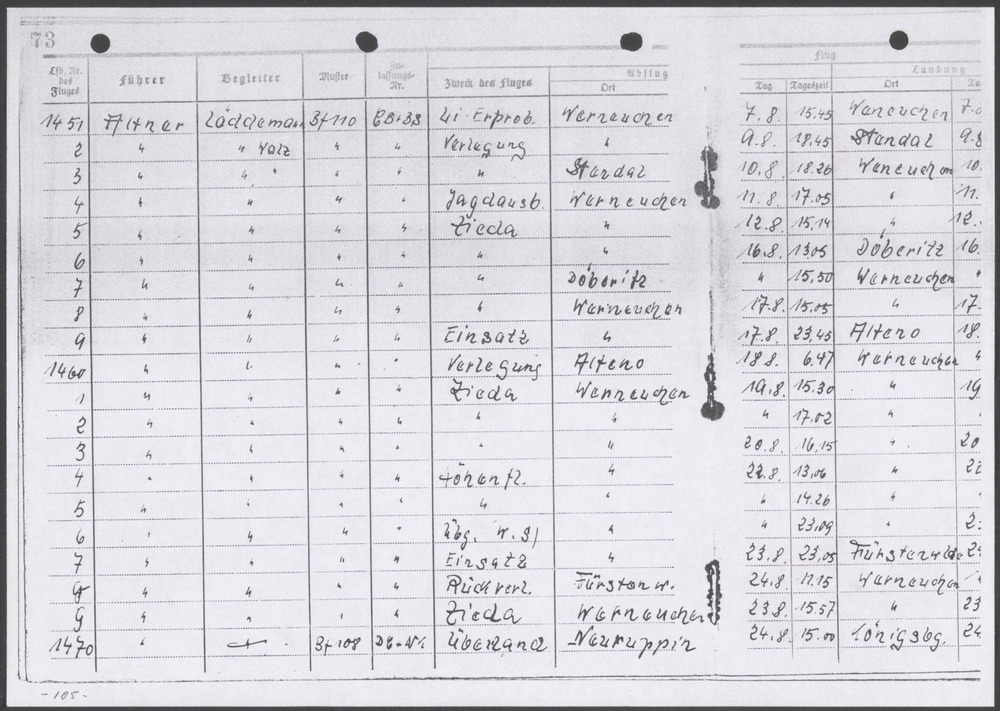 73
Flug
Abflug Landung
Lfd. Nr. des Fluges Führer Begleiter Muster Zu-lassungs-Nr. Zweck des Fluges Ort Tag Tageszeit Ort
1451 Altner Läddemann Bf 110 Werneuchen 7.8. 15.45 Weneuchen
2 " " Walz " " Verlegung " 9.8. 18.45 Standal 9.8
3 " " " " " " Standal 10.8 18.26 Weneuchen 10.
4 " " " " Jagdausb. Werneuchen 11.8 17.05 " 11.
5 " " " " Zieda " 12.8. 15.14 " 12.
6 " " " " " " 16.8. 13.05 Döberitz 16.
7 " " " " " Döberitz " 15.50 Werneuchen "
8 " " " " " Werneuchen 17.8. 15.05 " 17.
9 " " " " Einsatz " 17.8. 23.45 Alteno 18.
1460 " " " " Verlegung Alteno 18.8. 6.47 Werneuchen "
1 " " " " Zieda Werneuchen 19.8. 15.30 " 19
2 " " " " " " " 17.02 "
3 " " " " " " 20.8. 16.15 " 20
4 " " " " Höhenfl. " 22.8. 13.06 "
5 " " " " " " " 14.26 "
6 " " " " Übg. " " 23.09 " 2.
7 " " " " Einsatz " 23.8. 23.05 Fürstenwalde
8 " " " " Rückverl. Fürstenw. 24.8. 11.15 Werneuchen
9 " " " " Zieda Werneuchen 23.8. 15.57 " 23
1470 " Bf 108 Überland Neuruppin 24.8. 15.00 Königsbg. 24
-105-